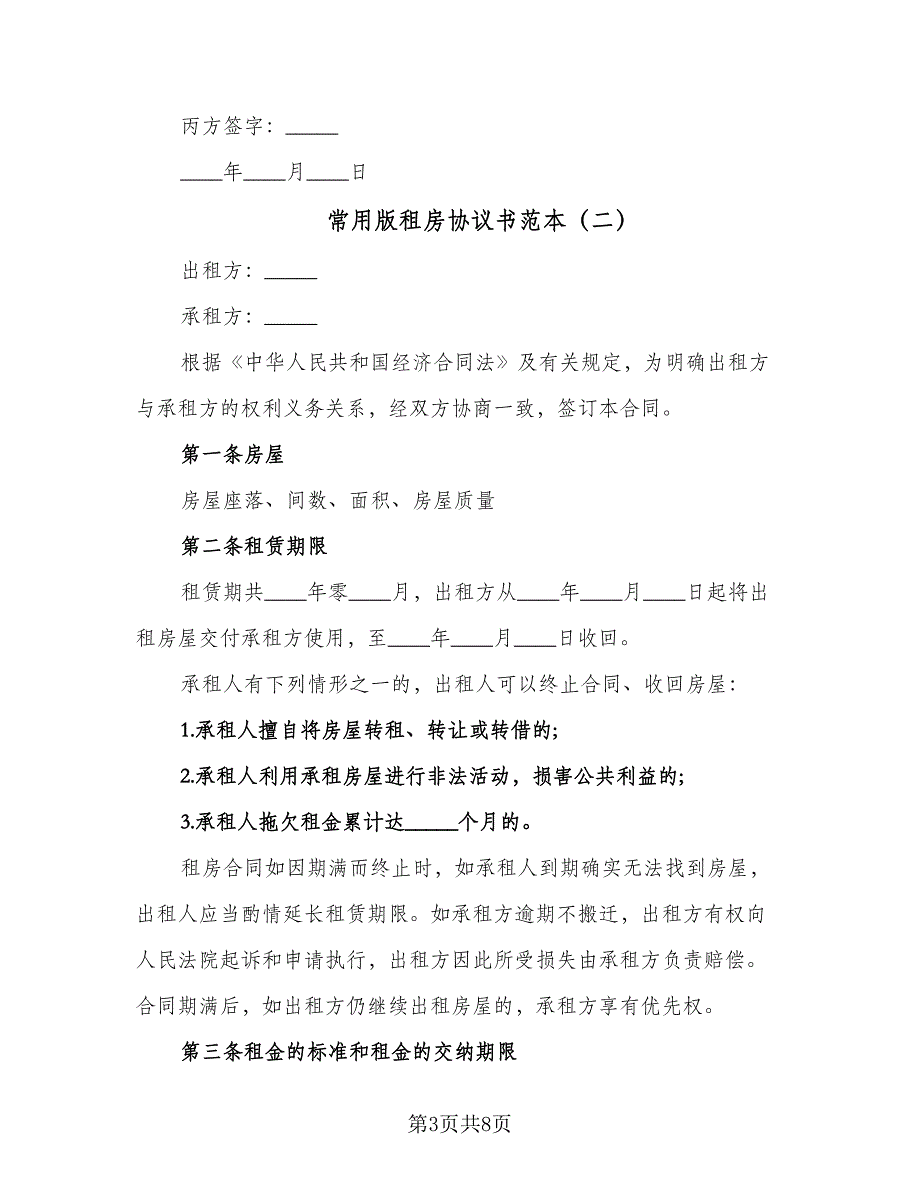 丙方签字：_____
____年____月____日
常用版租房协议书范本（二）
出租方：_____
承租方：_____
根据《中华人民共和国经济合同法》及有关规定，为明确出租方
与承租方的权利义务关系，经双方协商一致，签订本合同。
第一条房屋
房屋座落、间数、面积、房屋质量
第二条租赁期限
租赁期共____年零____月，出租方从____年____月____日起将出
租房屋交付承租方使用，至____年____月____日收回。
承租人有下列情形之一的，出租人可以终止合同、收回房屋：
1.承租人擅自将房屋转租、转让或转借的;
2.承租人利用承租房屋进行非法活动，损害公共利益的;
3.承租人拖欠租金累计达_____个月的。
租房合同如因期满而终止时，如承租人到期确实无法找到房屋，
出租人应当酌情延长租赁期限。如承租方逾期不搬迁，出租方有权向
人民法院起诉和申请执行，出租方因此所受损失由承租方负责赔偿。
合同期满后，如出租方仍继续出租房屋的，承租方享有优先权。
第三条租金的标准和租金的交纳期限
第3页共8页